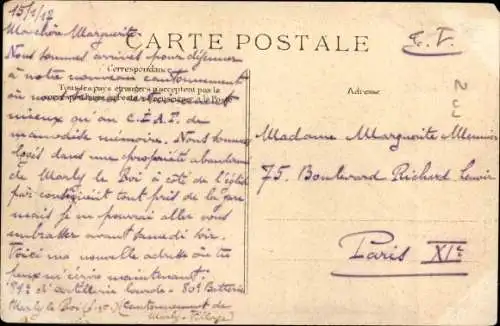 15/1/18
Ma chère Marguerite.
CARTE POSTALE
F. M.
Nous sommes arrivés pour déjeuner
à notre nouveau cantonnement
Correspondance
Tous les pays étrangers n'acceptent pas la
Adresse
mieux qu'au C.I.A.T. de
maudite mémoire. Nous sommes
logés dans une propriété abandonnée
de Marly le Roi à côté de l'église
tout près de la gare
mais je ne pourrai aller vous
embrasser avant samedi soir.
Voici ma nouvelle adresse où tu
peux m'écrire maintenant.
d'artillerie lourde - 80e Batterie
Marly le Roi (S. et O.) (cantonnement de
Marly-Village)
Madame Marguerite Meunier
75. Boulevard Richard Lenoir
Paris XIe